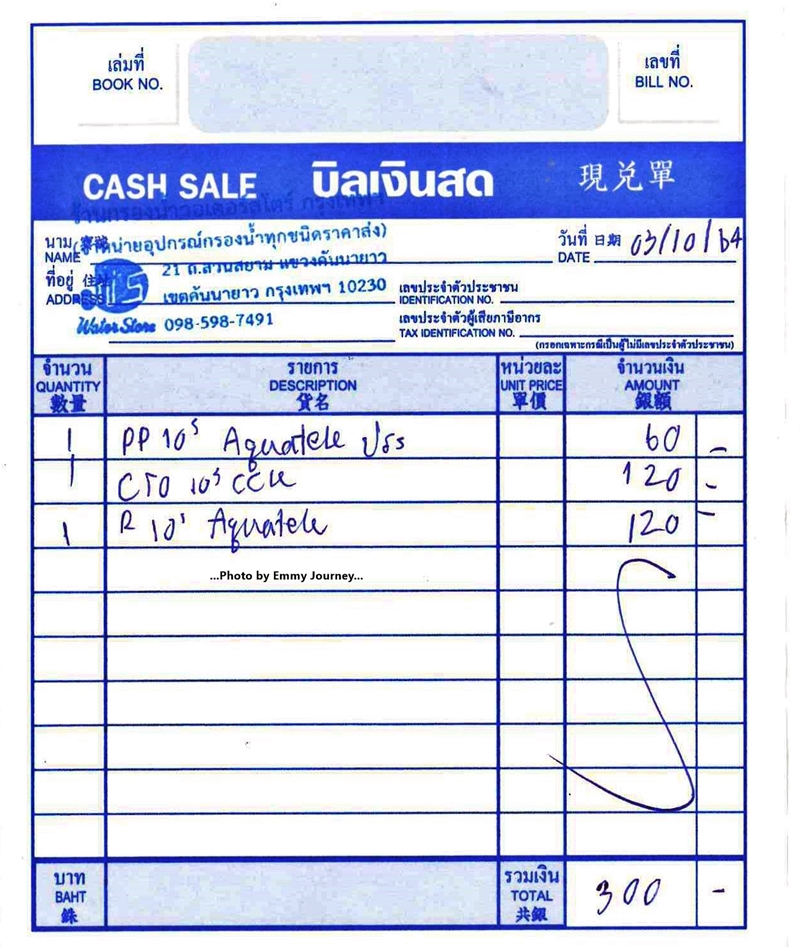 เล่มที่
BOOK NO.
เลขที่
BILL NO.
CASH SALE บิลเงินสด 現兑單
ร้านกรองน้ำวอเตอร์สโตร์ กรุงเทพฯ
(จำหน่ายอุปกรณ์กรองน้ำทุกชนิดราคาส่ง)
นาม
NAME
วันที่ 日期 03/10/64
DATE
21 ถ.สวนสยาม แขวงคันนายาว
ที่อยู่ 住址
ADDRESS
เขตคันนายาว กรุงเทพฯ 10230
เลขประจำตัวประชาชน
IDENTIFICATION NO.
Water Store 098-598-7491
เลขประจำตัวผู้เสียภาษีอากร
TAX IDENTIFICATION NO.
(กรอกเฉพาะกรณีเป็นผู้ไม่มีเลขประจำตัวประชาชน)
จำนวน รายการ หน่วยละ จำนวนเงิน
QUANTITY DESCRIPTION UNIT PRICE AMOUNT
數量 貨名 單價 銀額
1 PP 10" Aquatek 60 -
1 CTO 10" 120 -
1 R 10" Aquatek 120 -
...Photo by Emmy Journey...
บาท รวมเงิน
BAHT TOTAL 300 -
銖 共銀